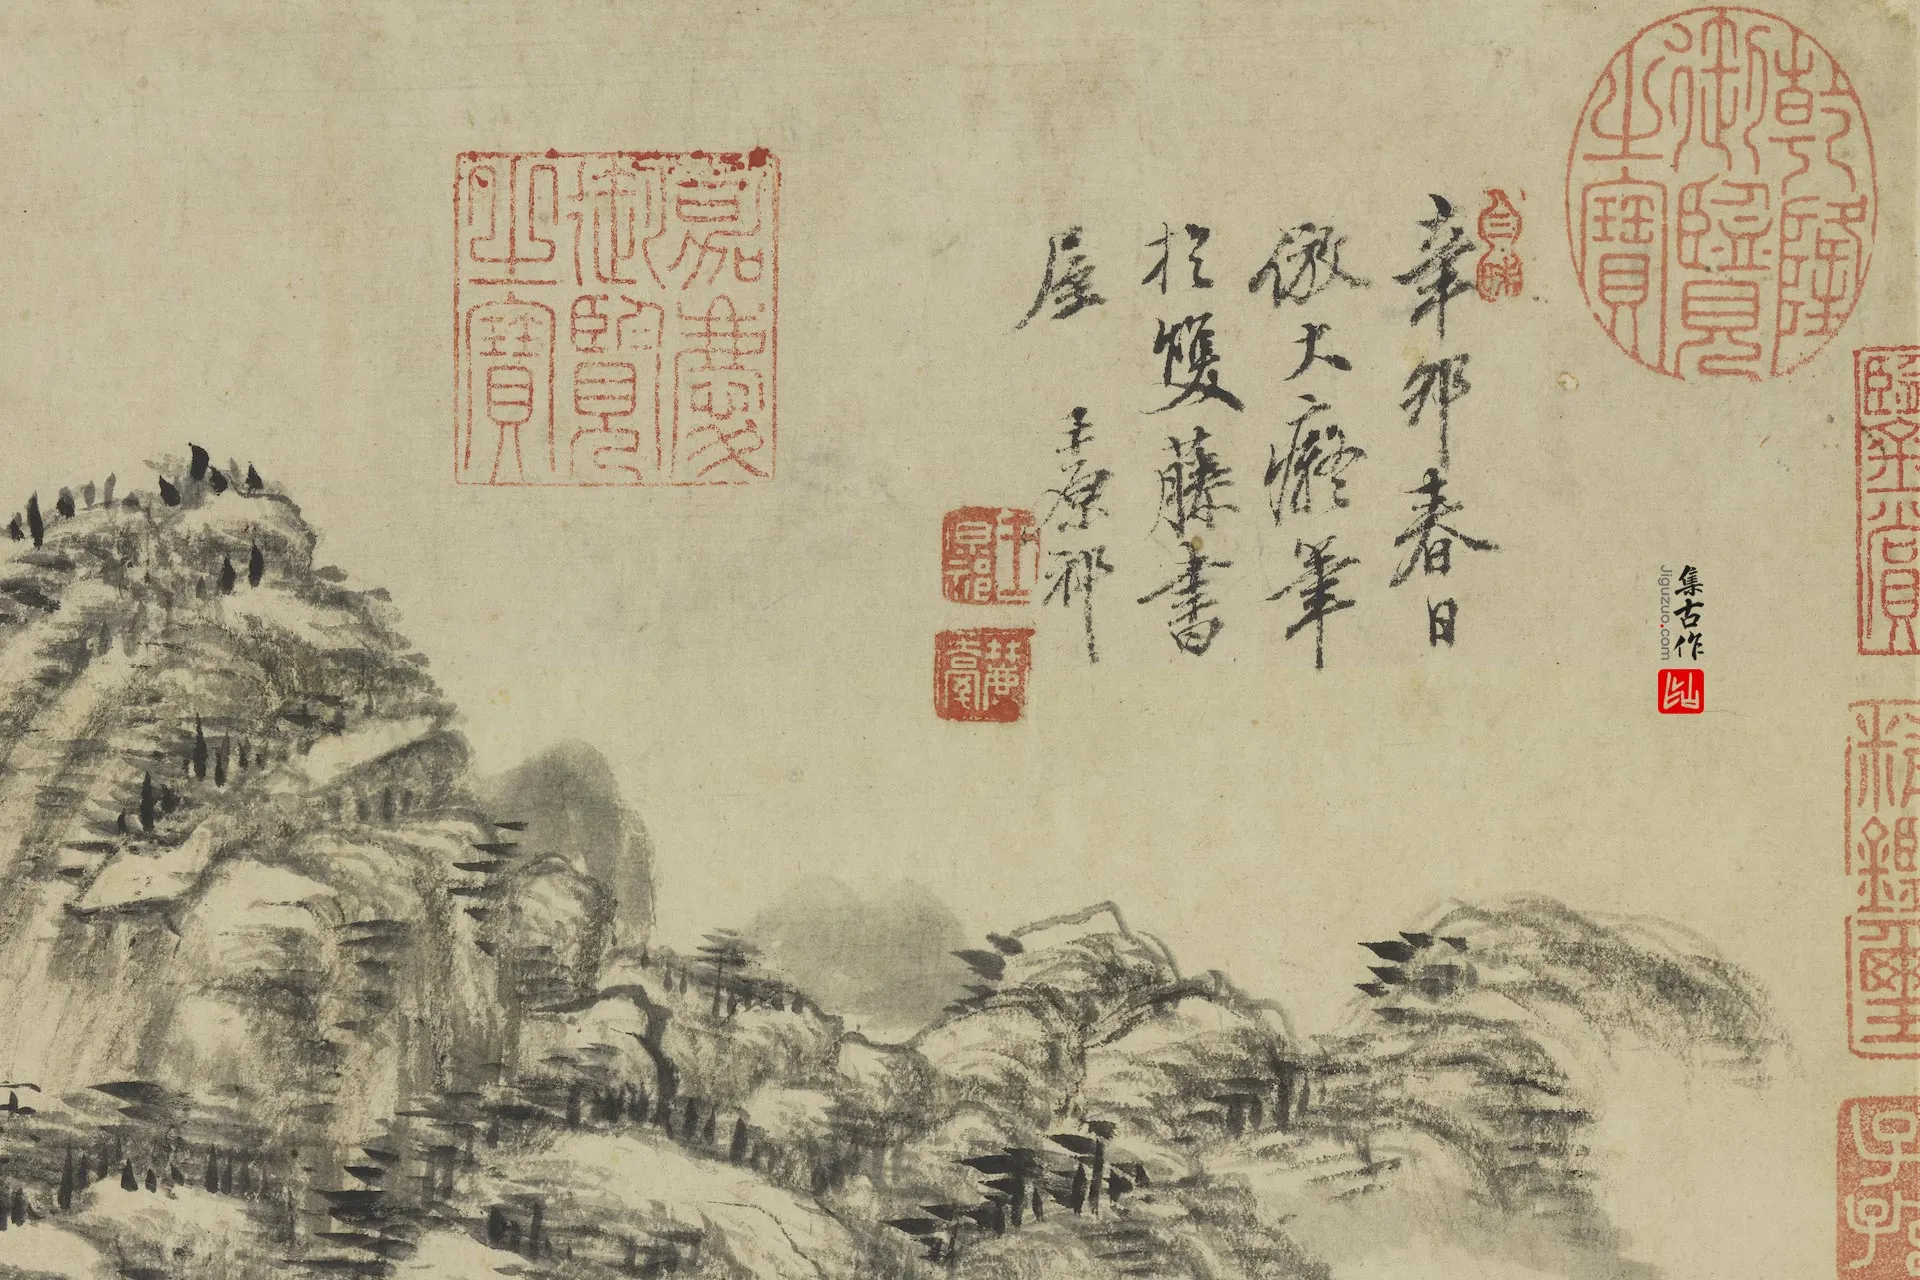 乾隆
御覽
之寶
辛卯春日
倣大癡筆
於雙藤書
屋 王原祁
嘉慶
御覽
之寶
集古作
Jiguzuo.com